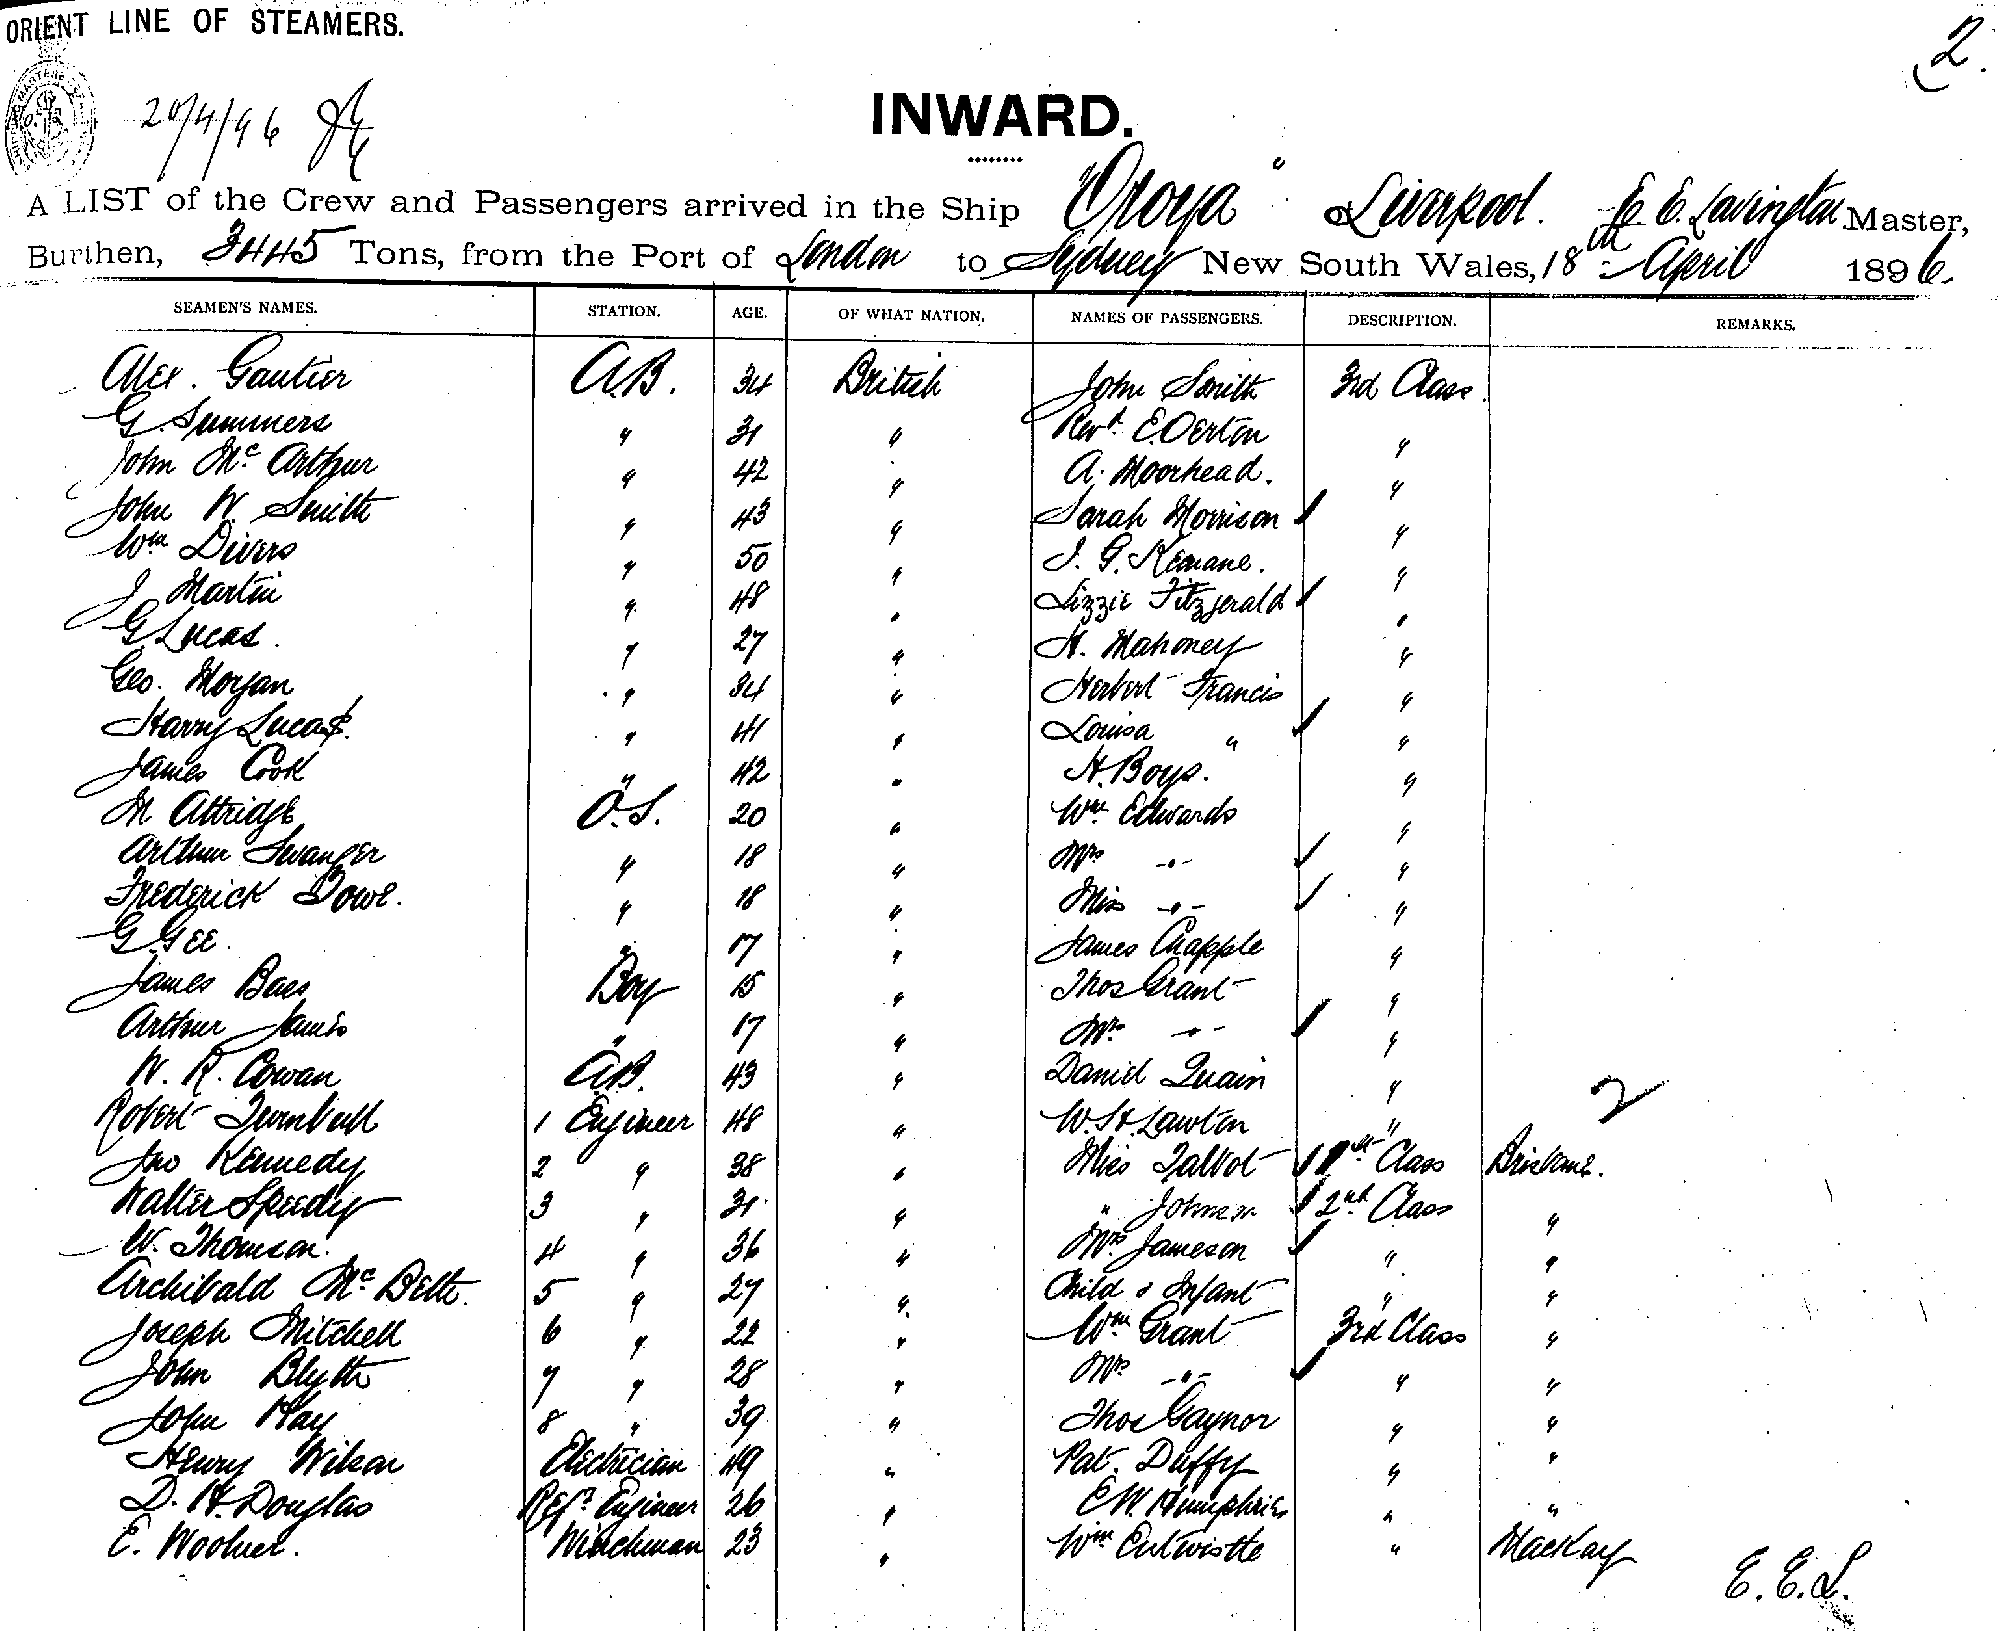 ORIENT LINE OF STEAMERS.
2.
20/4/96
INWARD.
A LIST of the Crew and Passengers arrived in the Ship "Oroya" Liverpool. E. E. Lavington Master,
Burthen, 3445 Tons, from the Port of London to Sydney New South Wales, 18th April 1896.
SEAMEN'S NAMES. STATION. AGE. OF WHAT NATION. NAMES OF PASSENGERS. DESCRIPTION. REMARKS.
Alex. Gautier A.B. 34 British John Smith 3rd Class.
G. Summers " 31 " Revd. E. Oerton "
John Mc Arthur " 42 " A. Moorhead. "
John W. Smith " 43 " Sarah Morrison "
Wm Divers " 50 " J. G. "
J Martin " 48 " Lizzie Fitzgerald "
G Lucas. " 27 " H. Mahoney "
Geo. Morgan " 34 " Herbert Francis "
Harry Lucas. " 41 " Louisa " "
James Cook " 42 " H. Boys. "
M Attridge O.S. 20 " Wm Edwards "
Arthur Swanger " 18 " Mrs -"- "
Frederick Dowe. " 18 " Miss -"- "
G. Gee. " 17 " James Chapple "
James Baes Boy 15 " Thos Grant "
Arthur James " 17 " Mrs -"- "
W. R. Cowan A.B. 43 " Daniel Quain " 2
Robert Turnbull 1 Engineer 48 " W. H. Lawton "
Jno Kennedy 2 " 38 " Miss Talbot 1st Class Brisbane.
Walter Speedy 3 " 31 " " Johnson 2nd Class "
W. Thomson. 4 " 36 " Mrs Jameson " "
Archibald Mc Beth. 5 " 27 " Child & Infant " "
Joseph Mitchell 6 " 22 " Wm Grant 3rd Class "
John Blyth 7 " 28 " Mrs -"- " "
John Hay 8 " 39 " Thos Gaynor " "
Henry Wilson Electrician 49 " Pat. Duffy " "
D. H. Douglas Refr. Engineer 26 " E W. Humphries " "
E. Woolner. Winchman 23 " Wm Entwistle " Mackay
E. E. L.